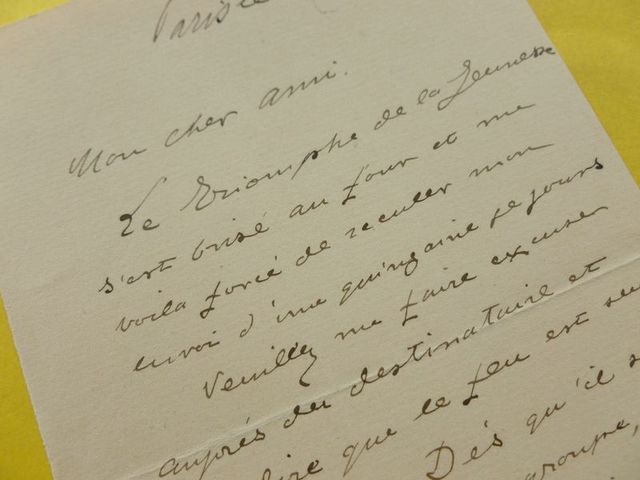 Paris le
Mon cher ami.
Le Triomphe de la Jeunesse
s'est brisé au four et me
voila forcé de reculer mon
envoi d'une quinzaine de jours
Veuillez me faire excuser
auprés du destinataire et
dire que le feu est seu
Dés qu'il s
groupe,